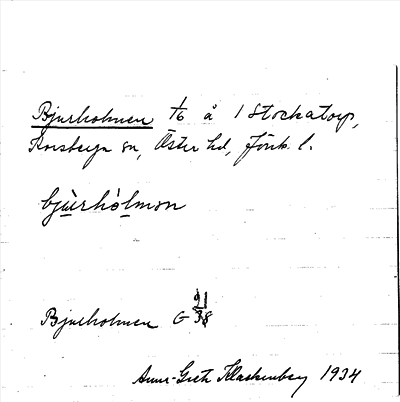 Bjurholmen 1/6 å 1 Stockatorp,
Korsberga sn, Östra hd, Jönk. l.
bju̱rhòḻmon
Bjurholmen G 21/38
Anna-Greta Klackenberg 1934